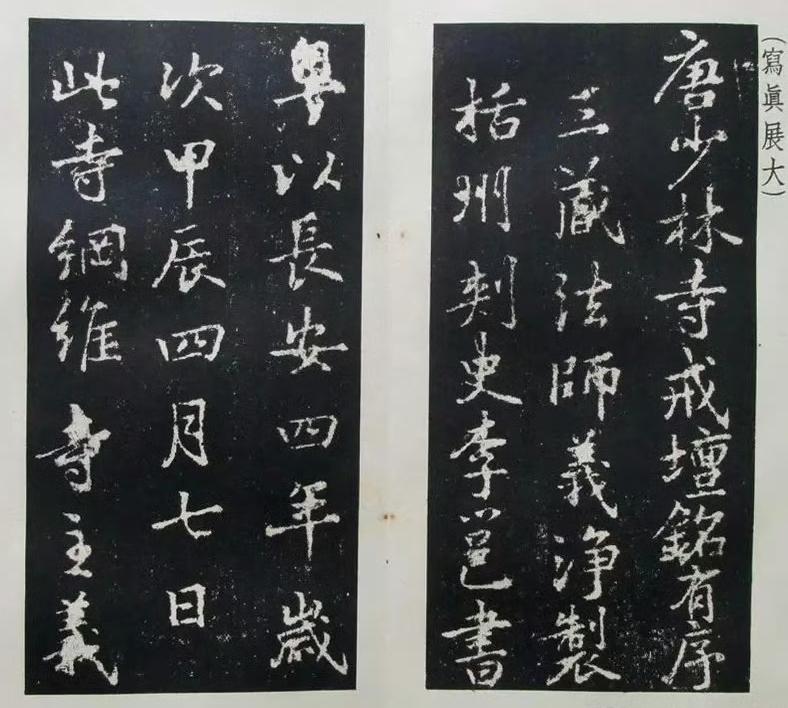 (寫眞展大)
唐少林寺戒壇銘有序
三藏法師義淨製
括州刺史李邕書
粤以長安四年歲
次甲辰四月七日
此寺綱維寺主義